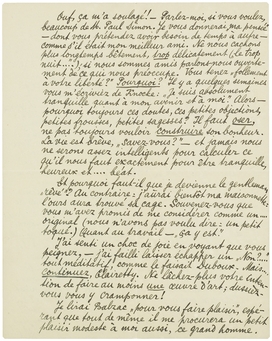 Ouf, ça m'a soulagé! — Parlez-moi, si vous voulez,
beaucoup de St. Paul Simon. Je vous donnerai ma pensée —
dont vous prétendez avoir besoin de temps à autre —
comme s'il était mon meilleur ami. Ne nous cachons
plus longtemps bêtement, trop délicatement, (le trop
nuit....); si nous sommes amis parlons-nous ouverte-
ment de ce qui nous préoccupe. Vous tenez follement
à votre liberté? Pourquoi? Il y a quelques semaines
vous m'écriviez de Knocke: Je suis absolument
tranquille quant à mon avenir et à moi! Alors —
pourquoi toujours ces doutes, ces petites objections,
petites frousses, petites sagesses? Il faut oser,
ne pas toujours vouloir construire son bonheur.
La vie est brève, savez-vous? — et jamais nous
ne serons assez intelligents pour calculer ce
qu'il nous faut exactement pour être tranquille,
heureux et.... béat.
Et pourquoi faut-il que je devienne le gentleman
rêvé? Au contraire: j'aurai bientôt ma maisonnette.
L'ours aura trouvé sa cage. Souvenez-vous que
vous m'avez promis de me considérer comme un
original (nous n'avez pas voulu dire: un petit
toqué.) Quant au travail — ça y est?
J'ai senti un choc de joie en voyant que vous
peignez, — j'ai failli laisser échapper un "Non?...?"
tout méditatif, comme le faisait Duboux. Mais
continuez, Clairetty. Ne lâchez plus votre inten-
tion de faire au moins une œuvre d'art, dussiez-
vous vous y cramponner!
Je lirai Balzac, pour vous faire plaisir, espé-
rant que tout de même il me procurera un petit
plaisir modeste à moi aussi, ce grand homme.